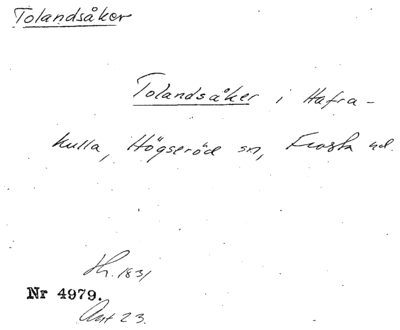 Tolandsåker
Tolandsåker i Hafra-
kulla, Högseröde sn, Frosta hd.
Hr. 1831
Nr 4979.
Akt 23.